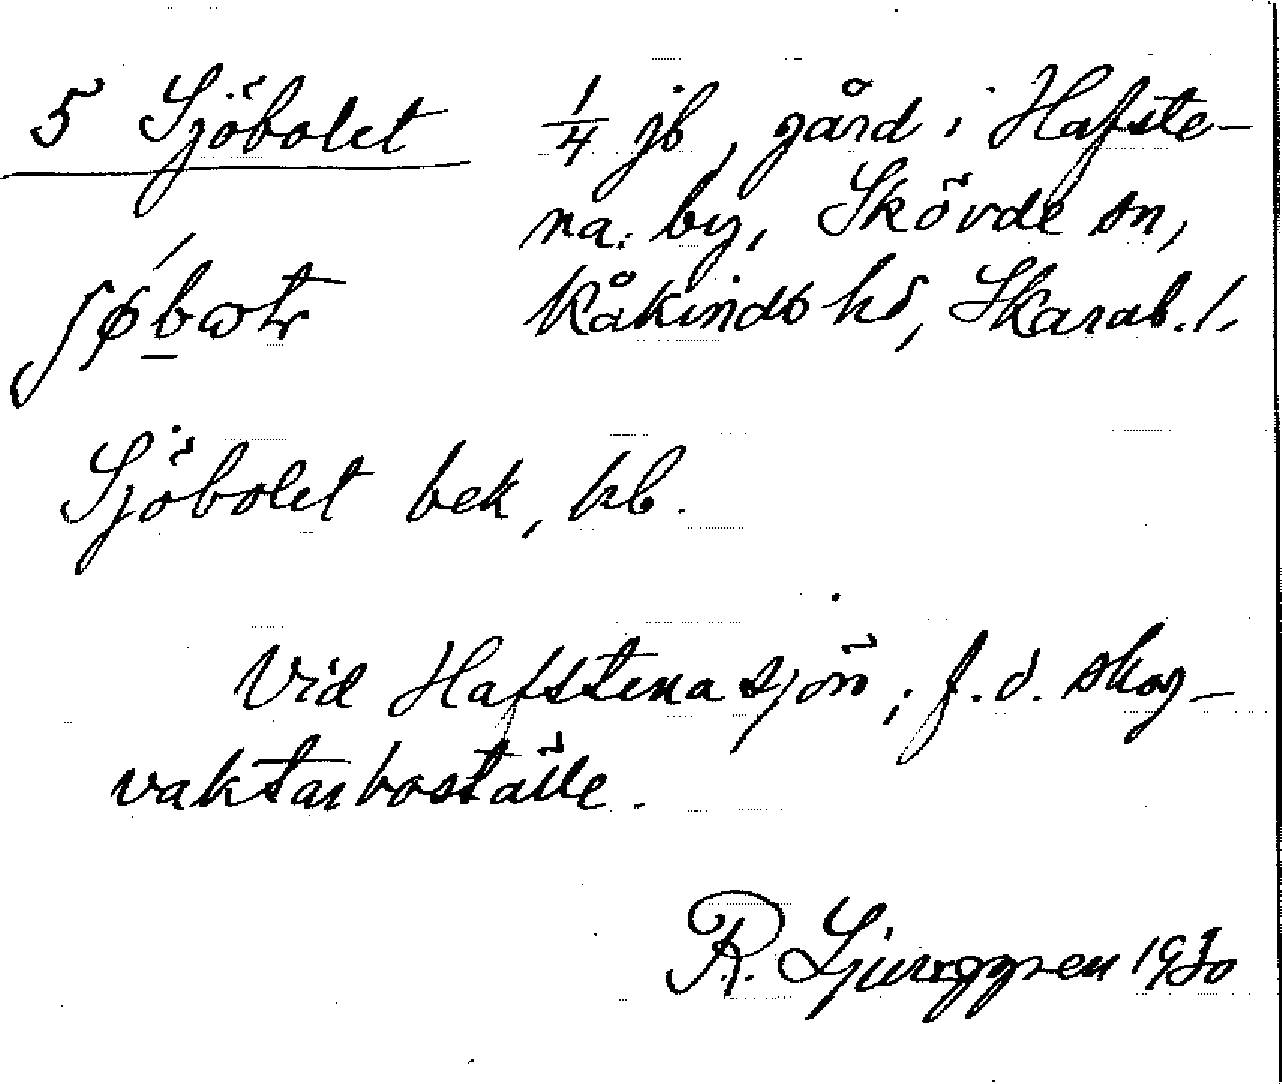 5 Sjöbolet 1/4 jb, gård i Hafste-
na by, Skövde sn,
Kåkinds hd, Skarab. l.
Sjöbolet bek, kb.
Vid Hafstenasjön; f.d. skog-
vaktarboställe.
R. Ljunggren 1930